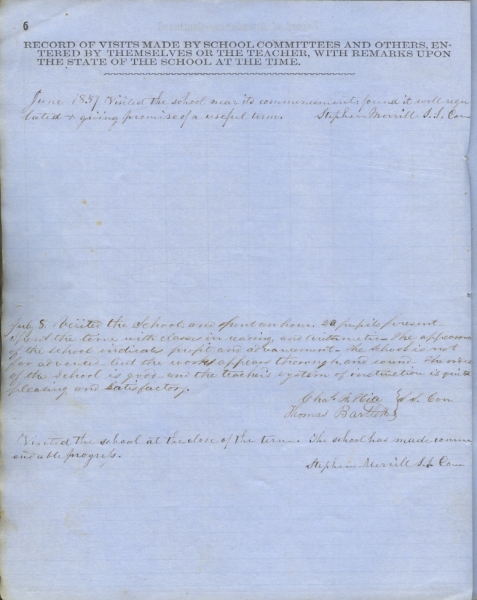 6
RECORD OF VISITS MADE BY SCHOOL COMMITTEES AND OTHERS, EN-
TERED BY THEMSELVES OR THE TEACHER, WITH REMARKS UPON
THE STATE OF THE SCHOOL AT THE TIME.
June Visited the school near its commencement, found it well regu
lated & giving promise of a useful term. Stephen Merrill S. S. Com
July 8. Visited the School and spent an hour. pupils present.
Spent the time with classes in reading, and The appearance
of the school indicates profit and advancement. The School is not
far advanced but the work appears thorough The order
of the School is good and the teacher's system of instruction is quite
pleasing and satisfactory.
Chas. S. Com
Thomas
Visited the school at the close of the term. The school has made comm
endable progress.
Stephen Merrill S. S. Com